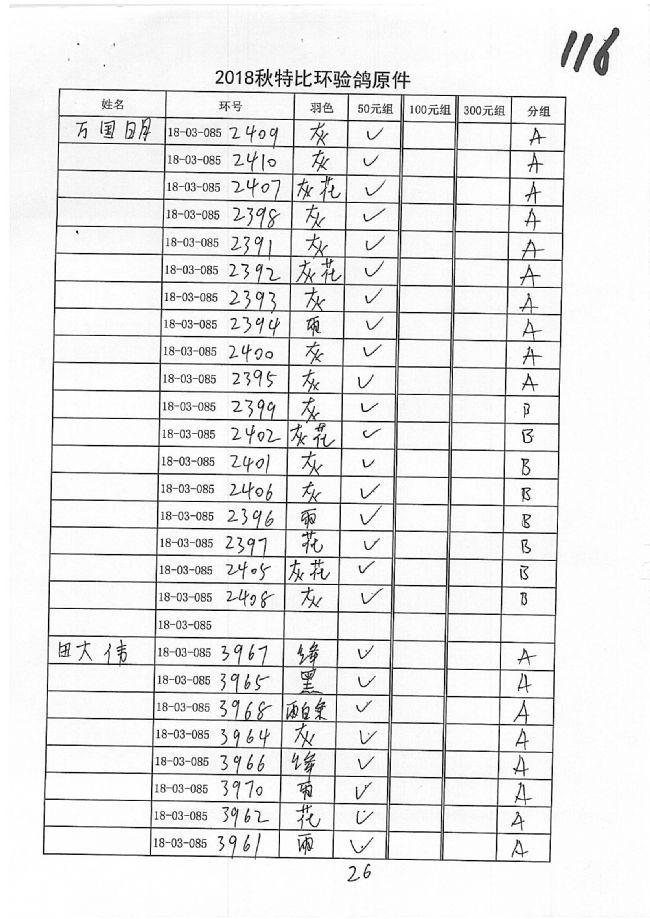 116
2018秋特比环验鸽原件
姓名 环号 羽色 50元组 100元组 300元组 分组
万国明 18-03-085 2409 灰 ✓ A
18-03-085 2410 灰 ✓ A
18-03-085 2407 灰花 ✓ A
18-03-085 2398 灰 ✓ A
18-03-085 2391 灰 ✓ A
18-03-085 2392 灰花 ✓ A
18-03-085 2393 灰 ✓ A
18-03-085 2394 雨 ✓ A
18-03-085 2400 灰 ✓ A
18-03-085 2395 灰 ✓ A
18-03-085 2399 灰 ✓ B
18-03-085 2402 灰花 ✓ B
18-03-085 2401 灰 ✓ B
18-03-085 2406 灰 ✓ B
18-03-085 2396 雨 ✓ B
18-03-085 2397 花 ✓ B
18-03-085 2405 灰花 ✓ B
18-03-085 2408 灰 ✓ B
18-03-085
田大伟 18-03-085 3967 绛 ✓ A
18-03-085 3965 黑 ✓ A
18-03-085 3968 雨白条 ✓ A
18-03-085 3964 灰 ✓ A
18-03-085 3966 绛 ✓ A
18-03-085 3970 雨 ✓ A
18-03-085 3962 花 ✓ A
18-03-085 3961 雨 ✓ A
26